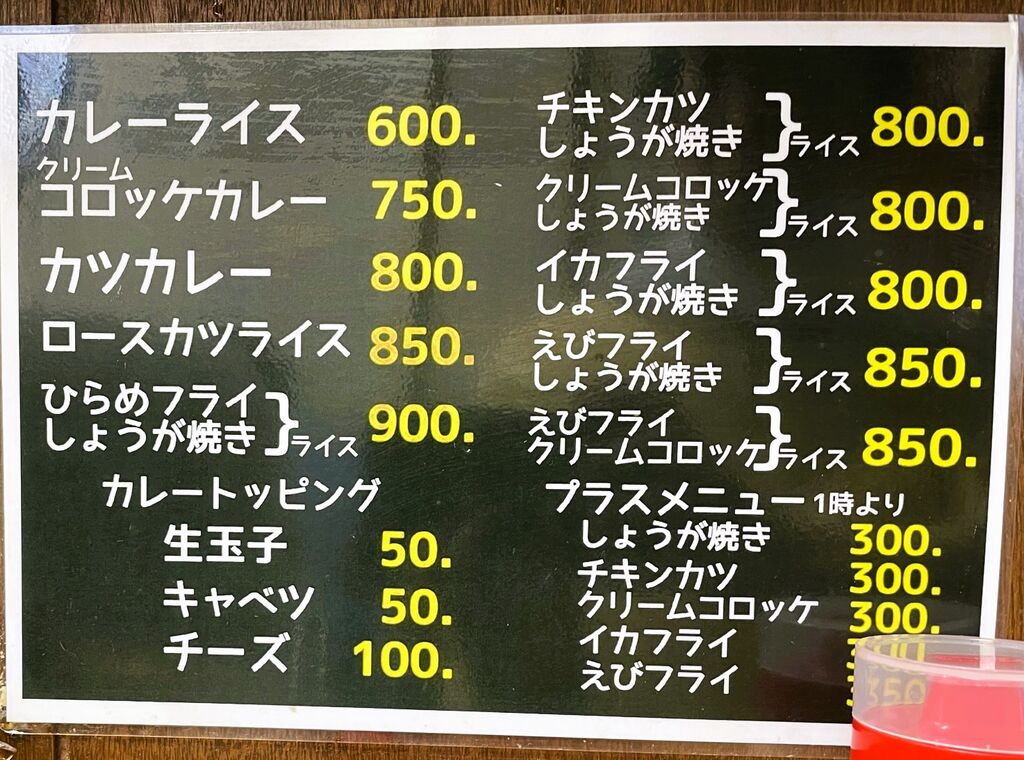 カレーライス 600.
クリーム
コロッケカレー 750.
カツカレー 800.
ロースカツライス 850.
ひらめフライ
しょうが焼き } ライス 900.
カレートッピング
生玉子 50.
キャベツ 50.
チーズ 100.
チキンカツ
しょうが焼き } ライス 800.
クリームコロッケ
しょうが焼き } ライス 800.
イカフライ
しょうが焼き } ライス 800.
えびフライ
しょうが焼き } ライス 850.
えびフライ
クリームコロッケ } ライス 850.
プラスメニュー 1時より
しょうが焼き 300.
チキンカツ 300.
クリームコロッケ 300.
イカフライ
えびフライ 350